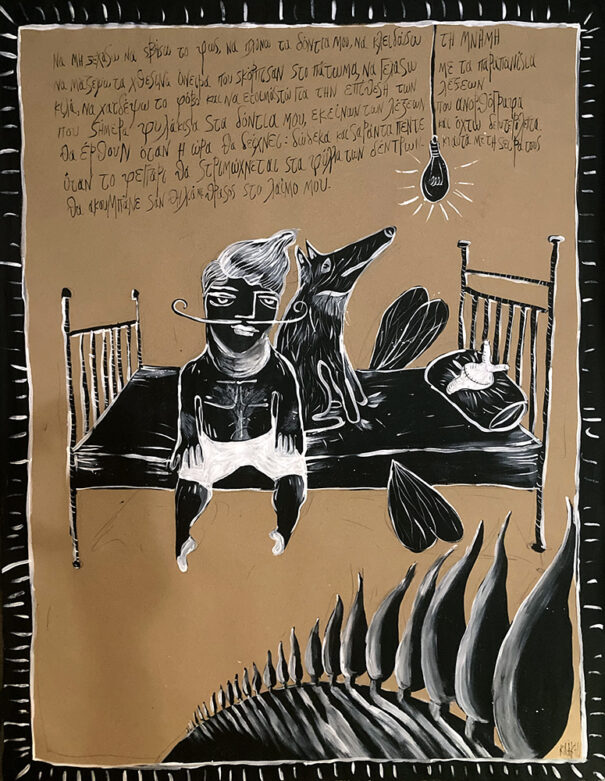 Να μη ξεχάσω να σβήσω το φως, να πλύνω τα δόντια μου, να κλειδώσω τη μνήμη
να μαζέψω τα χθεσινά όνειρα που σκόρπισαν στο πάτωμα, να γελάσω με τα παραπανίσια
κιλά, να χαϊδέψω το φόβο και να ετοιμαστώ για την επίθεση των λέξεων
που σήμερα φυλάκισα στα δόντια μου, εκείνων των λέξεων που ανορθόγραφα
θα έρθουν όταν η ώρα θα δείχνει: δώδεκα και σαράντα πέντε και οχτώ δευτερόλεπτα.
όταν το φεγγάρι θα στριμώχνεται στα φύλλα των δέντρων κι αυτά με τη σειρά τους
θα ακουμπάνε σαν στο λαιμό μου.